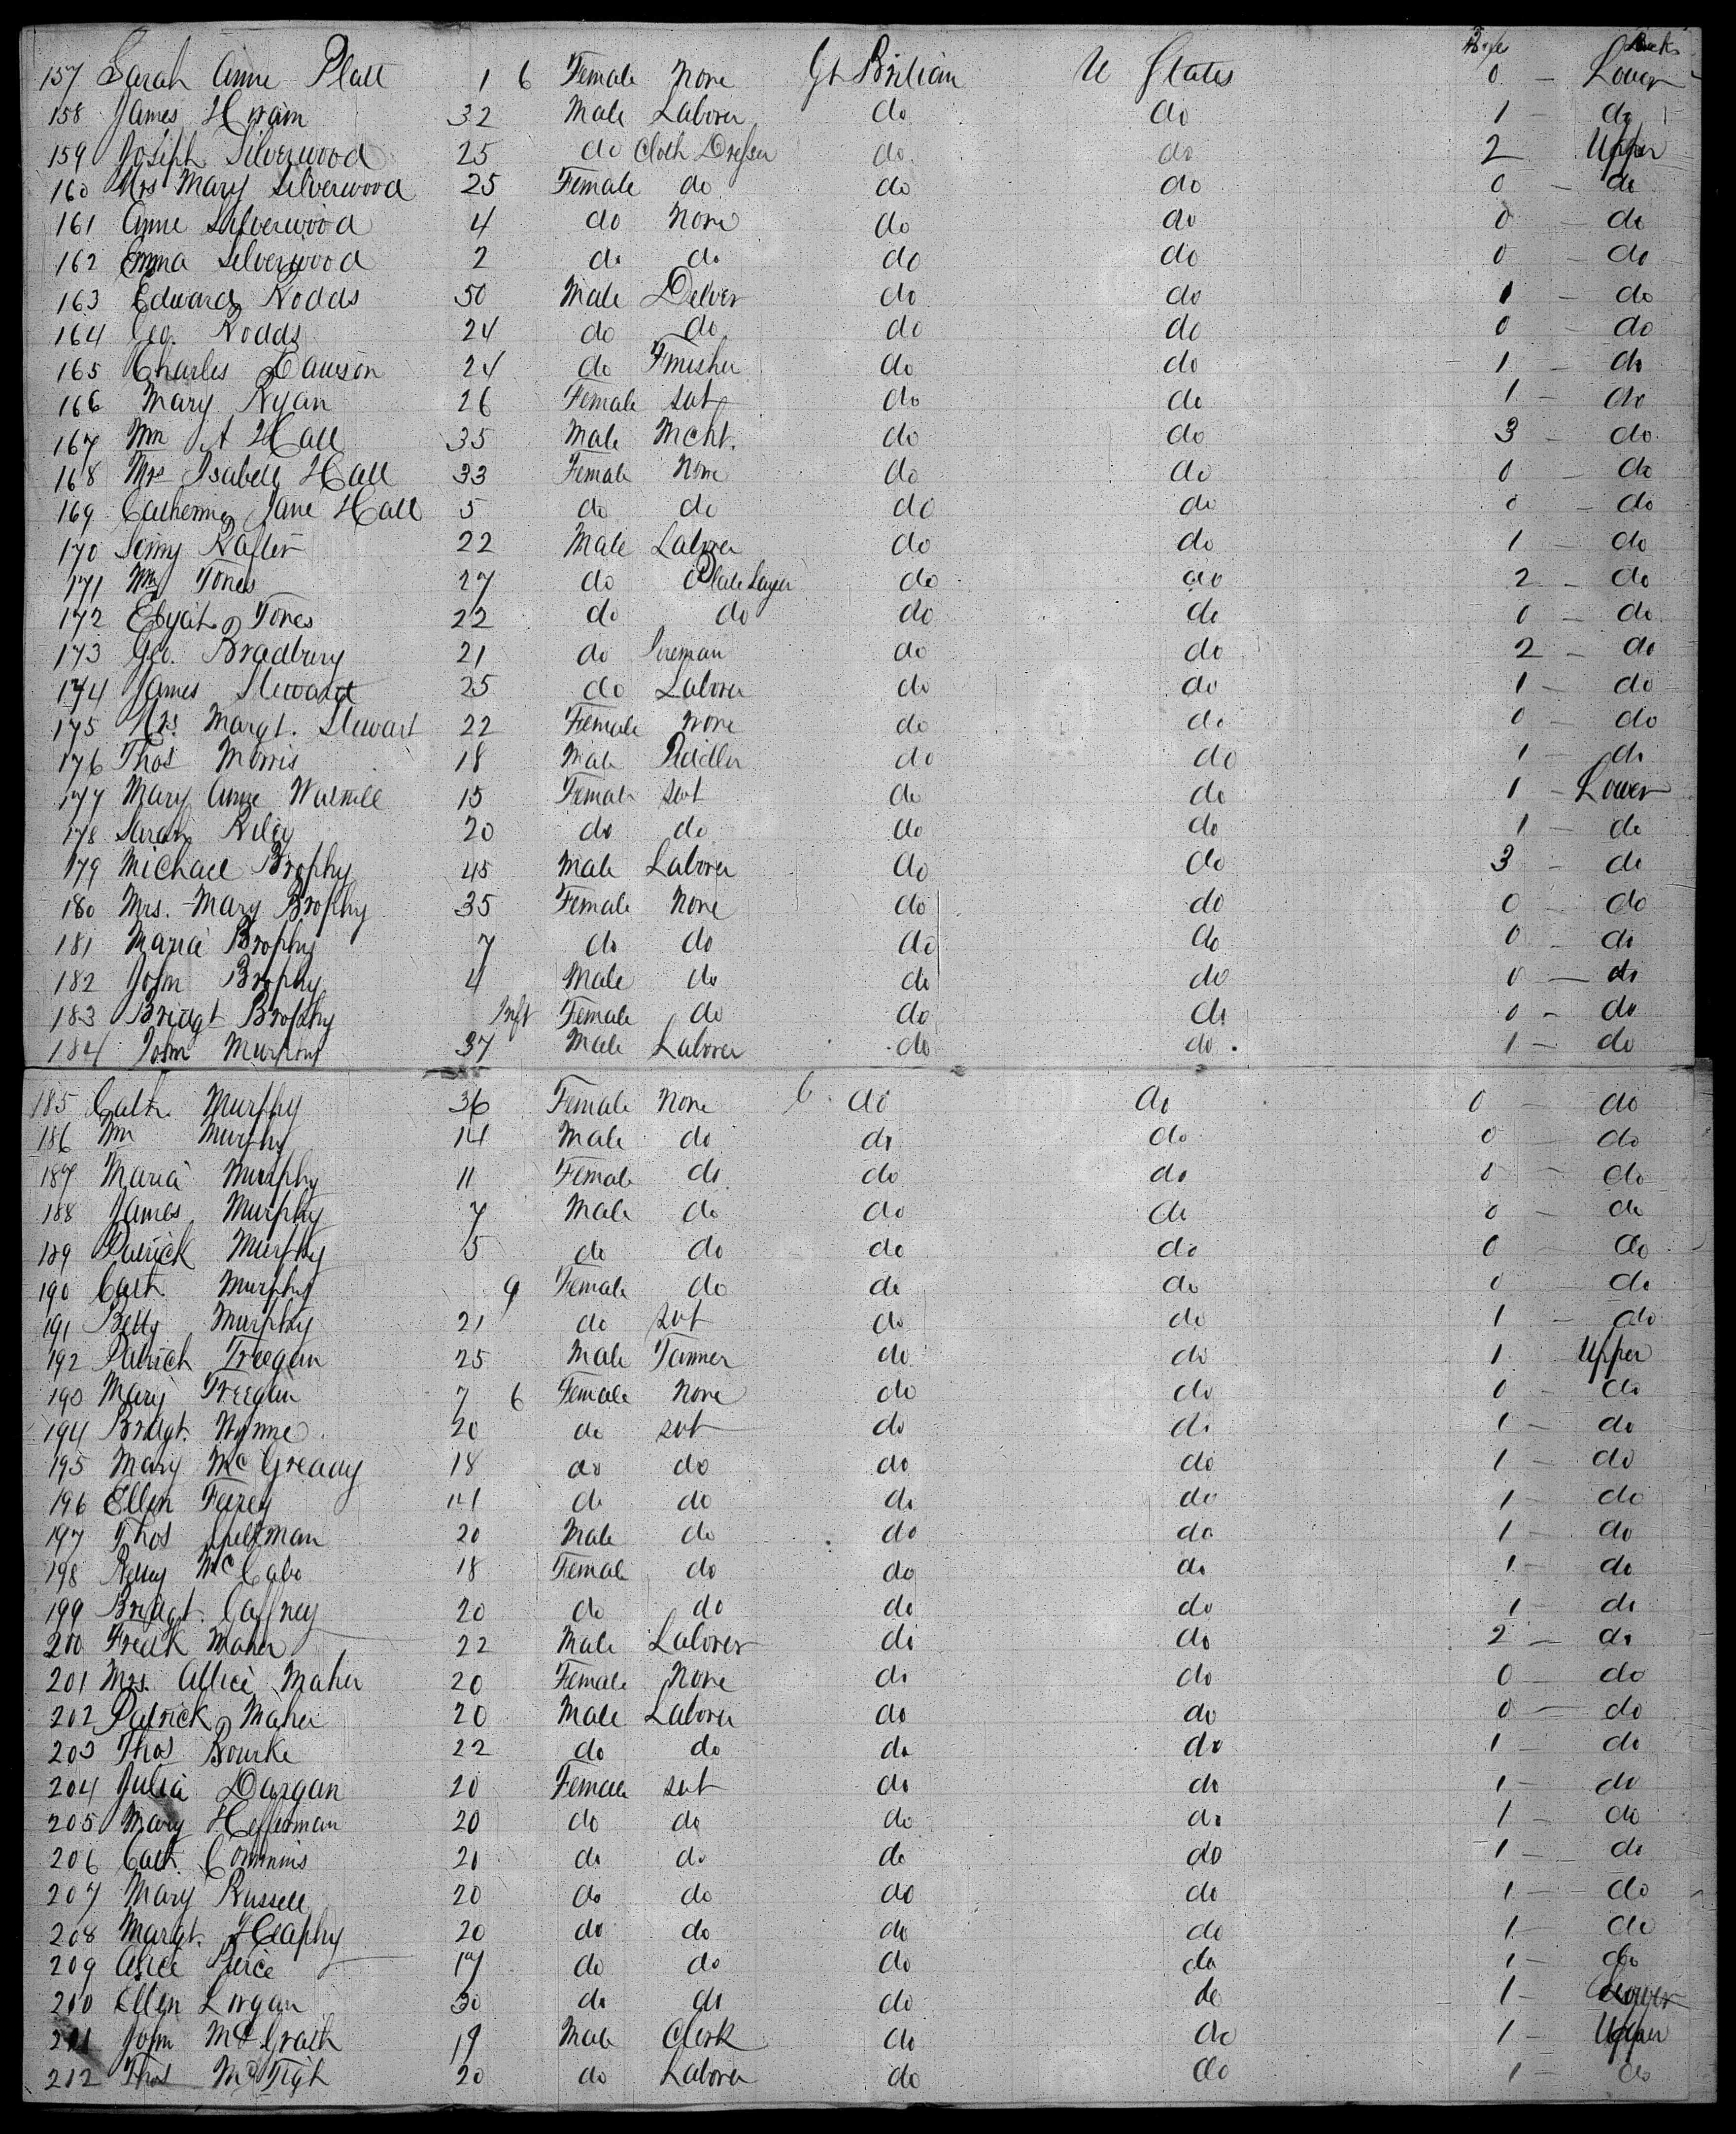 Decks
157 Sarah Anne Platt 1 6 Female None Gt Britian U States 0 - Lower
158 James 32 Male Laborer do do 1 - do
159 Joseph Silverwood 25 do Cloth Dresser do do 2 Upper
160 Mrs Mary Silverwood 25 Female do do do 0 - do
161 Anne Silverwood 4 do None do do 0 - do
162 Emma Silverwood 2 do do do do 0 - do
163 Edward Rodds 50 Male Delver do do 1 - do
164 Geo. Rodds 24 do do do do 0 - do
165 Charles Lawson 24 do Finisher do do 1 - do
166 Mary Ryan 26 Female svt do do 1 - do
167 Wm A Hall 35 Male Mcht. do do 3 - do
168 Mrs Isabell Hall 33 Female None do do 0 - do
169 Catherine Jane Hall 5 do do do do 0 - do
170 22 Male Laborer do do 1 - do
171 Wm Jones 27 do Plate Layer do do 2 - do
172 Jones 22 do do do do 0 - do
173 Geo. Bradbury 21 do Fireman do do 2 - do
174 James Steward 25 do Laborer do do 1 - do
175 Mrs. Margt. Stewart 22 Female None do do 0 - do
176 Thos Morris 18 Male do do 1 - do
177 Mary Anne 15 Female svt do do 1 - Lower
178 Sarah Riley 20 do do do do 1 - do
179 Michael Brophy 45 Male Laborer do do 3 - do
180 Mrs. Mary Brophy 35 Female None do do 0 - do
181 Maria Brophy 7 do do do do 0 - do
182 John Brophy 4 Male do do do 0 - do
183 Bridgt Brophy Inft Female do do do 0 - do
184 John Murphy 37 Male Laborer do do 1 - do
185 Cath. Murphy 36 Female None do do 0 - do
186 Wm Murphy 14 Male do do do 0 - do
187 Maria Murphy 11 Female do do do 0 - do
188 James Murphy 7 Male do do do 0 - do
189 Patrick Murphy 5 do do do do 0 - do
190 Cath. Murphy 9 Female do do do 0 - do
191 Betty Murphy 21 do svt do do 1 - do
192 Patrick Treegan 25 Male Tanner do do 1 Upper
193 Mary Treegan 7 6 Female None do do 0 - do
194 Bridgt. Wynne 20 do svt do do 1 - do
195 Mary McGreavy 18 do do do do 1 - do
196 Ellen 14 do do do do 1 - do
197 Thos Spellman 20 Male do do do 1 - do
198 McCabe 18 Female do do do 1 - do
199 Bridgt. Caffrey 20 do do do do 1 - do
200 Fredk Maher 22 Male Laborer do do 2 - do
201 Mrs. Allice Maher 20 Female None do do 0 - do
202 Patrick Maher 20 Male Laborer do do 0 - do
203 Thos Bourke 22 do do do do 1 - do
204 Julia Dargan 20 Female svt do do 1 - do
205 Mary Heffernan 20 do do do do 1 - do
206 Cath. Commins 20 do do do do 1 - do
207 Mary Russell 20 do do do do 1 - do
208 Margt. Heaphy 20 do do do do 1 - do
209 Alice 17 do do do do 1 - do
210 Ellen Lorgan 30 do do do do 1 - Lower
211 John McGrath 19 Male Clerk do do 1 - Upper
212 Thos McTigh 20 do Laborer do do 1 - do